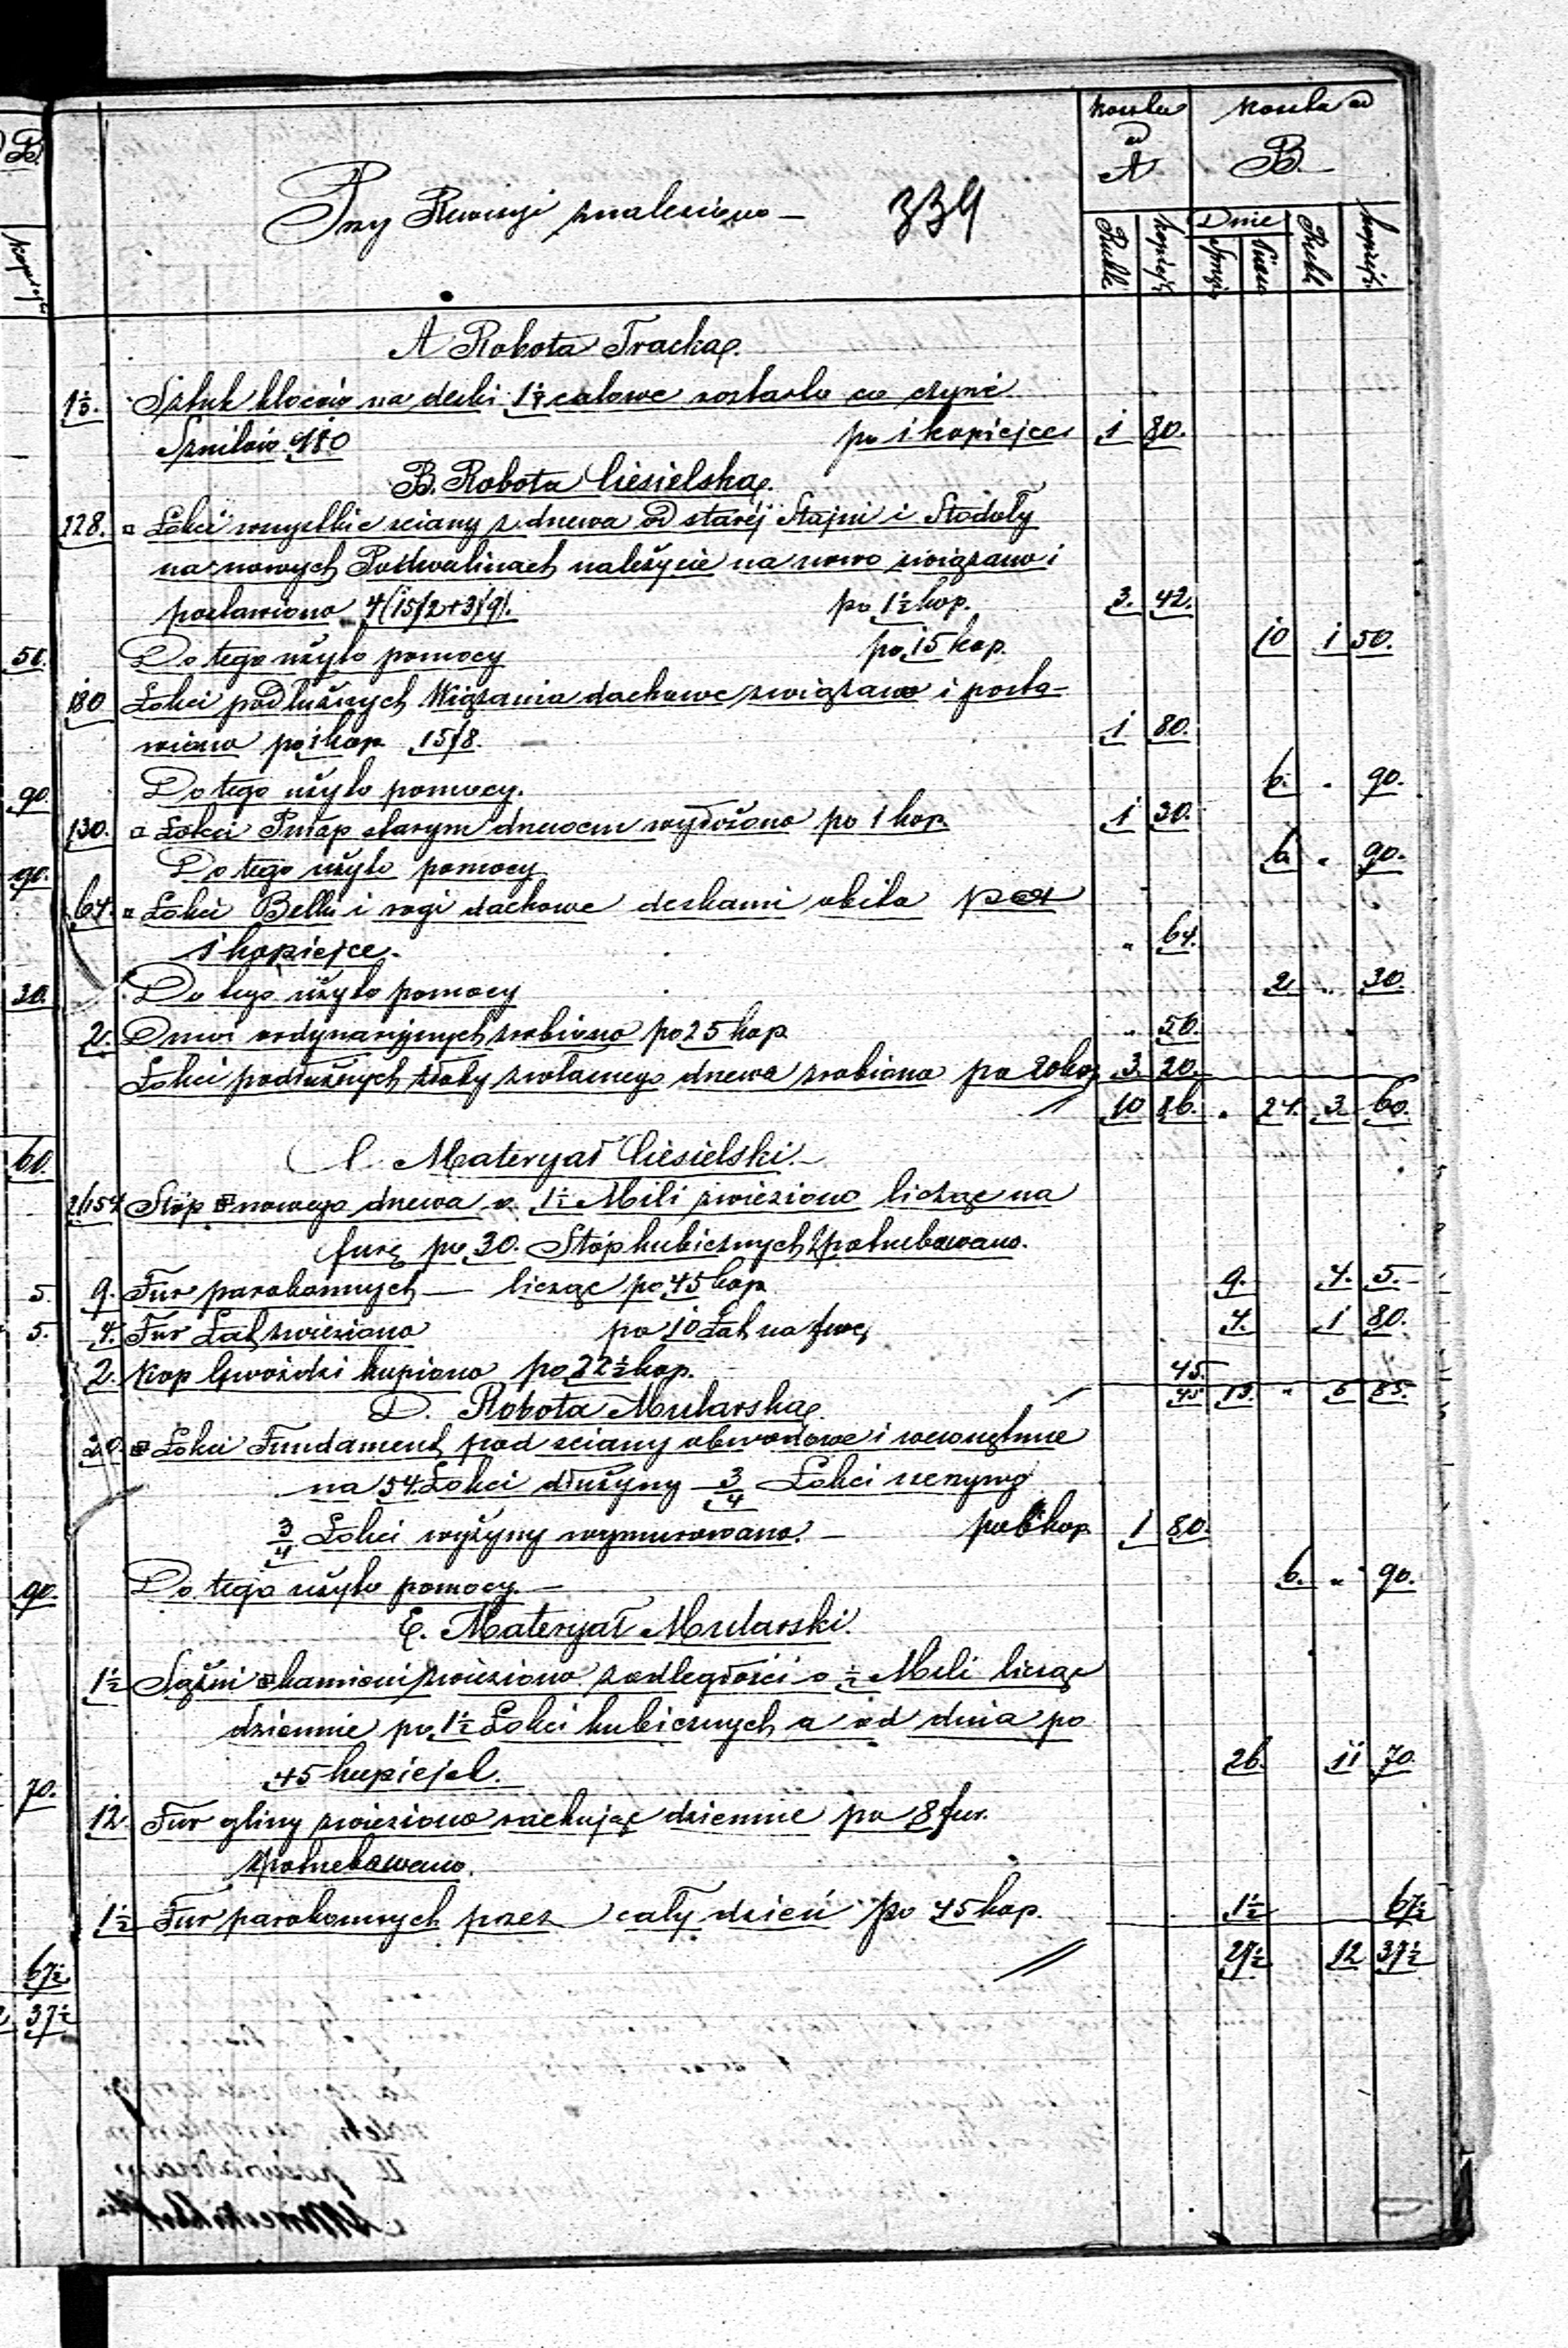 koszta koszta
ad ad
A B.
Przy Rewizyi znaleziono — 339
Ruble kopiejk Dnie Ruble kopiejk
A Robota Tracka.
Sztuk kloców na deski 1¼ calowe roztarto co czyni
Sznitów 180 po 1 kopiejce 1 80.
B. Robota Ciesielska.
228. □ Łokci wszystkie sciany z drzewa od staréj Stajni i Stodoły
na nowych Podwalinach należycie na nowo związano i
postawiono 4(15/2+3/9). po 1½ kop. 3. 42.
Do tego użyto pomocy po 15 kop. 10 1 50.
180 Łokci podłużnych Wiązania dachowe związano i posta-
wiono po 1 kop 15/8. 1 80.
Do tego użyto pomocy. 6. „ 90.
130. □ Łokci Pułap starym drzewem wyłożono po 1 kop 1 30.
Do tego użyto pomocy 6 „ 90.
64. □ Łokci Belki i rogi dachowe deskami obito po
1 kopiejce. „ 64.
Do tego użyto pomocy 2 „ 30.
2. Drzwi ordynaryjnych zrobiono po 25 kop „ 50.
Łokci podłużnych żłoby z rolanego drzewa zrobiono po 20 kop 3 20.
10 86. „ 24. 3 60.
C. Materyał Ciesielski.—
Stóp nowego drzewa o 1½ Mili zwieziono licząc na
furę po 30. Stóp kubicznych zpotrzebowano.
9. Fur parokonnych — licząc po 45 kop 9. 4. 5.
4. Fur Łat zwieziono po 10 Łat na furę 4. 1 80.
2. Kop Gwoździ kupiono po 22½ kop. 45.
45 13. „ 5 85.
D. Robota Mularska.
Łokci Fundament pod sciany obwodowe i wewnętrzne
na 54 Łokci dłużyny ¾ Łokci szerzyny
¾ Łokci wyżyny wymurowano. — po 6 kop 1 80.
Do tego użyto pomocy.— 6. „ 90.
E. Materyał Mularski.
1½ Sążni kamieni zwieziono z odległości o ½ Mili licząc
dziennie po 1½ Łokci kubicznych a od dnia po
45 kopiejek. 26. 11 70.
12. Fur gliny zwieziono rachując dziennie po 8 fur.
zpotrzebowano.
1½ Fur parokonnych przez cały dzień po 45 kop. 1½ 67½
27½ 12 37½